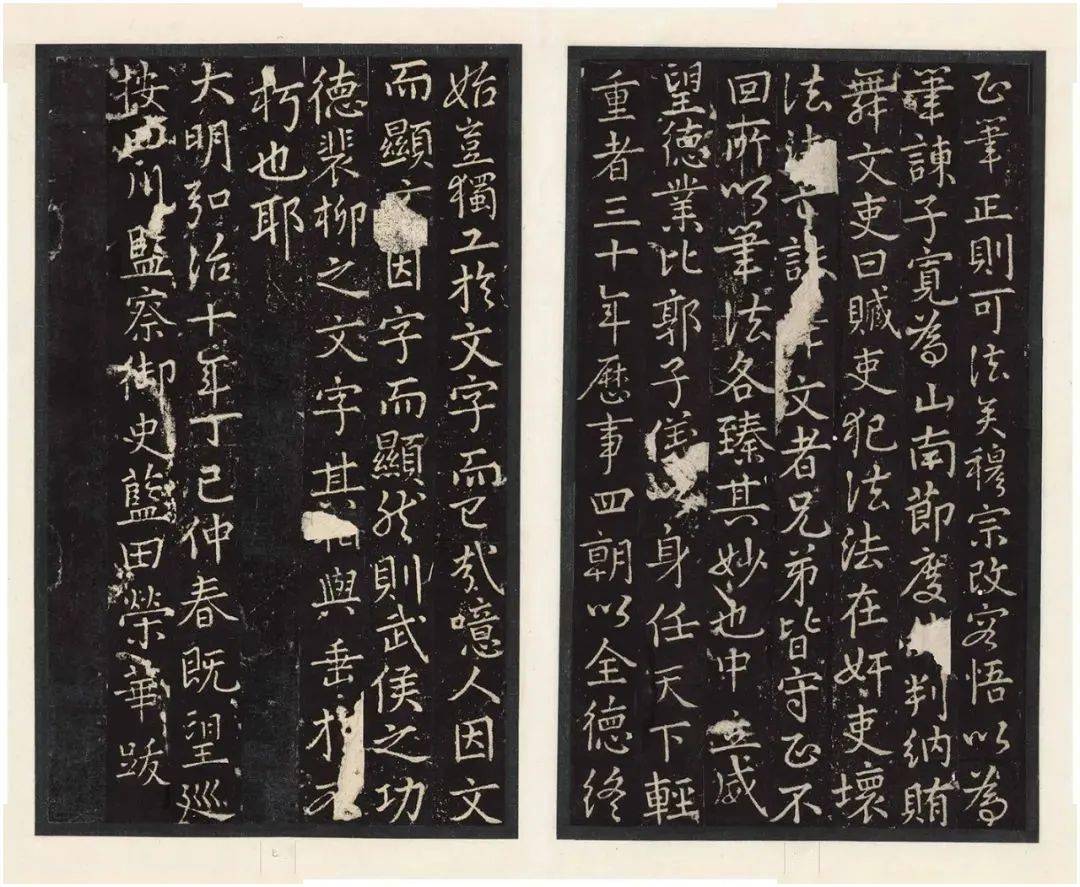 正筆正則可法矣穆宗改容悟以為
筆諫子寬為山南節度判納賄
舞文吏曰贓吏犯法法在奸吏壞
法法亡誅文者兄弟皆守正不
回所以筆法各臻其妙也中立威
望德業比郭子儀身任天下輕
重者三十年歷事四朝以全德終
始豈獨工於文字而已哉噫人因文
而顯文因字而顯然則武侯之功
德裴柳之文字其相與垂於不
朽也耶
大明弘治十年丁巳仲春既望巡
按四川監察御史藍田榮華跋